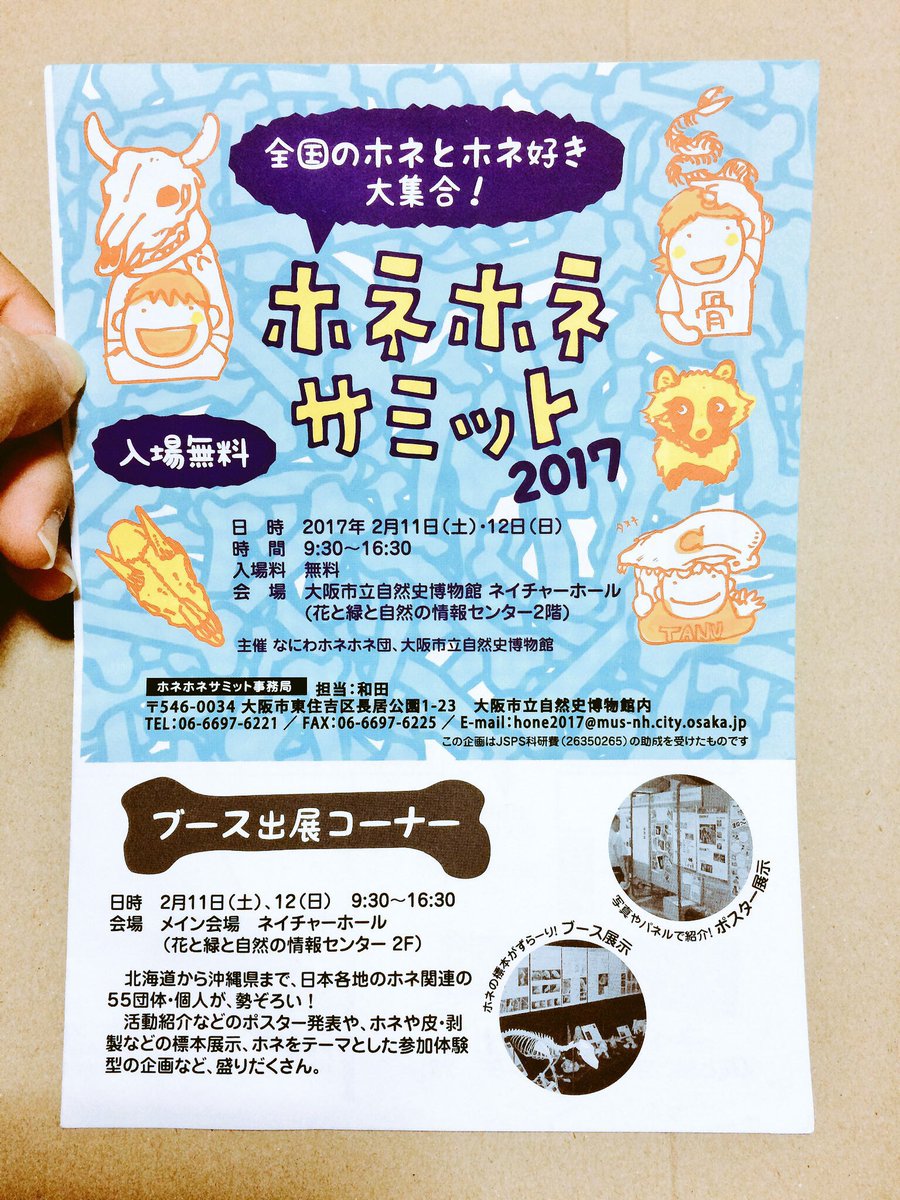 全国のホネとホネ好き
大集合！
ホネホネ
サミット
2017
骨
入場無料
タヌ子
TANU
日　時　2017年 2月11日（土）・12日（日）
時　間　9:30〜16:30
入場料　無料
会　場　大阪市立自然史博物館 ネイチャーホール
（花と緑と自然の情報センター2階）
主催 なにわホネホネ団、大阪市立自然史博物館
ホネホネサミット事務局　担当：和田
〒546-0034 大阪市東住吉区長居公園1-23　大阪市立自然史博物館内
TEL：06-6697-6221 ／ FAX：06-6697-6225 ／ E-mail：hone2017@mus-nh.city.osaka.jp
この企画はJSPS科研費（26350265）の助成を受けたものです
ブース出展コーナー
日時　2月11日（土）、12（日）　9:30〜16:30
会場　メイン会場　ネイチャーホール
（花と緑と自然の情報センター 2F）
北海道から沖縄県まで、日本各地のホネ関連の
55団体・個人が、勢ぞろい！
活動紹介などのポスター発表や、ホネや皮・剥
製などの標本展示、ホネをテーマとした参加体験
型の企画など、盛りだくさん。
写真やパネルで紹介！ ポスター展示
ホネの標本がずらーり！ ブース展示